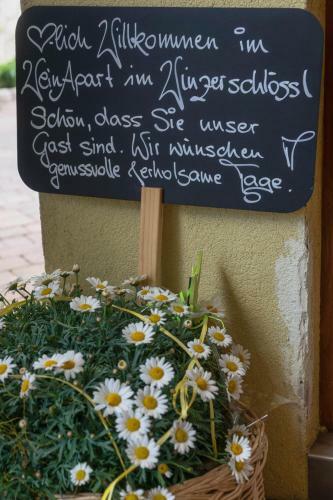 ♡lich Willkommen im
WeinApart im Winzerschlössl
Schön, dass Sie unser
Gast sind. Wir wünschen
genussvolle & erholsame Tage.